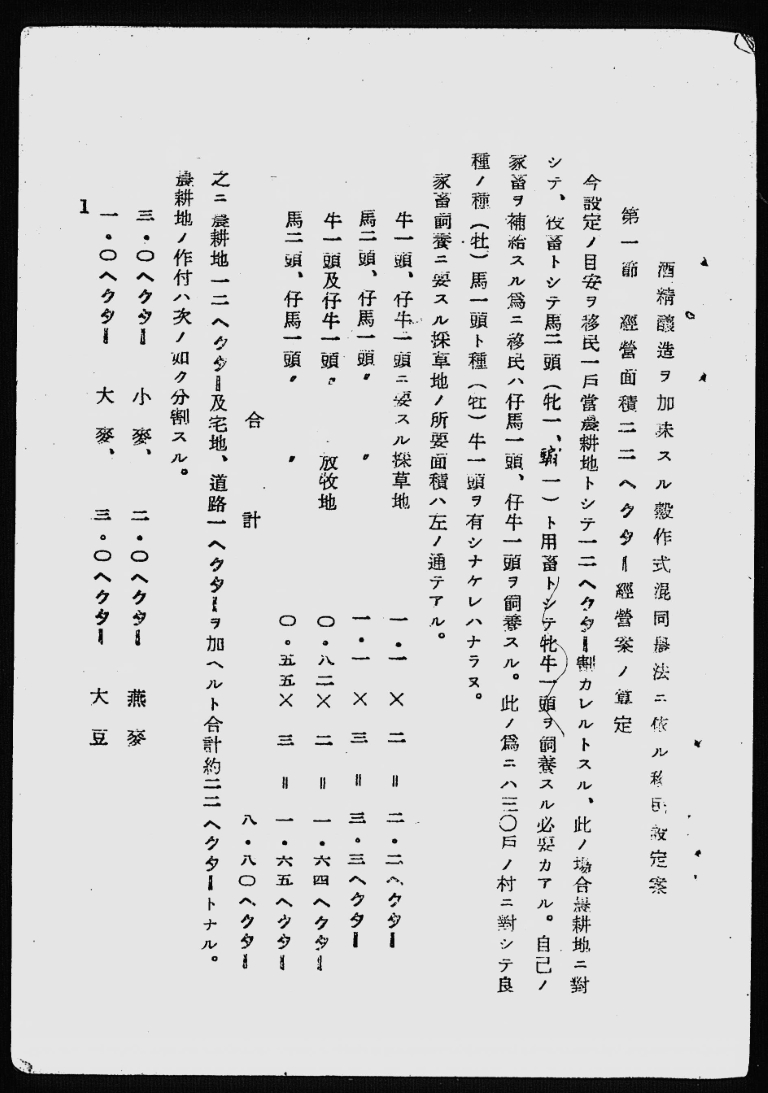 酒精釀造ヲ加味スル穀作式混同農法ニ依ル移民設定案
第一節　經營面積二二ヘクター經營案ノ算定
今設定ノ目安ヲ移民一戶當農耕地トシテ一二ヘクター割カレルトスル、此ノ場合農耕地ニ對
シテ、役畜トシテ馬二頭（牝一、騸一）ト用畜トシテ牝牛一頭ヲ飼養スル必要カアル。自己ノ
家畜ヲ補給スル爲ニ移民ハ仔馬一頭、仔牛一頭ヲ飼養スル。此ノ爲ニハ三〇戶ノ村ニ對シテ良
種ノ種（牡）馬一頭ト種（牡）牛一頭ヲ有シナケレハナラヌ。
家畜飼養ニ要スル採草地ノ所要面積ハ左ノ通テアル。
牛一頭、仔牛一頭ニ要スル採草地　一・一×二＝二・二ヘクター
馬二頭、仔馬一頭〃　〃　一・一×三＝三。三ヘクター
牛一頭及仔牛一頭〃　放牧地　〇・八二×二＝一・六四ヘクター
馬二頭、仔馬一頭〃　〃　〇。五五×三＝一・六五ヘクター
合計　八・八〇ヘクター
之ニ農耕地一二ヘクター及宅地、道路一ヘクターヲ加ヘルト合計約二二ヘクタートナル。
農耕地ノ作付ハ次ノ如ク分割スル。
三・〇ヘクター　小麥、　二・〇ヘクター　燕麥
一・〇ヘクター　大麥、　三。〇ヘクター　大豆
1